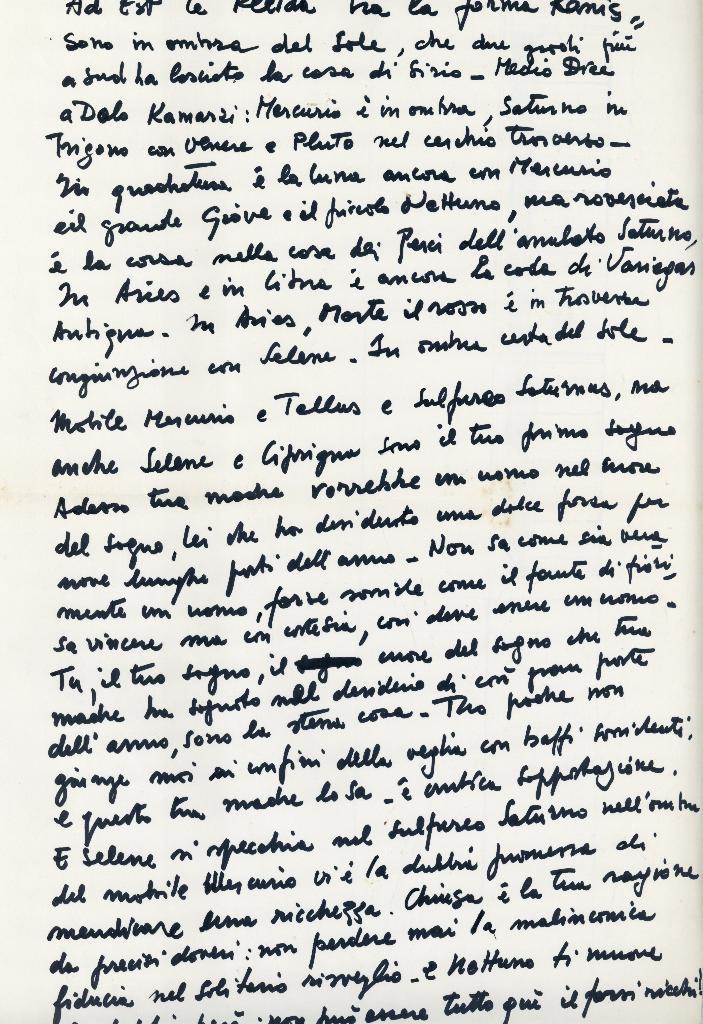 Ad Est le Pleida ha la forma Kanis,,
Sono in ombra del Sole, che due gradi più
a Sud ha lasciato la casa di Sirio - Medio Dree
a Dolo Kamarsi: Mercurio è in ombra, Saturno in
Trigono con Venere e Pluto nel cerchio trasverso -
In quadratura è la luna ancora con Mercurio
e il grande Giove e il piccolo Nettuno, ma rovesciata
è la corsa nella casa dei Pesci dell'anulato Saturno,
In Aries e in Libra è ancora la coda di
Antigua. In Aries, Marte il rosso è in trasversa
congiunzione con Selene. In ombra certa del Sole -
Mobile Mercurio e Tellus e sulfureo Saturnus, ma
anche Selene e Ciprigna sono il tuo primo sogno
Adesso tua madre vorrebbe un uomo nel cuore
del sogno, lei che ha desiderato una dolce forza per
nove lunghe parti dell'anno - Non sa come sia vera-
mente un uomo, forse sorride come il fante di fiori,
sa vincere ma con cortesia, così deve essere un uomo -
Tu, il tuo sogno, il cuore del sogno che tua
madre ha sognato nel desiderio di così gran parte
dell'anno, sono la stessa cosa - Tuo padre non
giunge mai ai confini della veglia con baffi sorridenti,
e questo tua madre lo sa - è antica sopportazione.
E Selene si specchia nel sulfureo Saturno nell'ombra
del mobile Mercurio vi è la dubbia promessa di
mendicare una ricchezza. Chiusa è la tua ragione
da precisi doveri: non perdere mai la malinconica
fiducia nel solitario risveglio - e Nettuno ti muove
non può essere tutto qui il farsi ricchi!